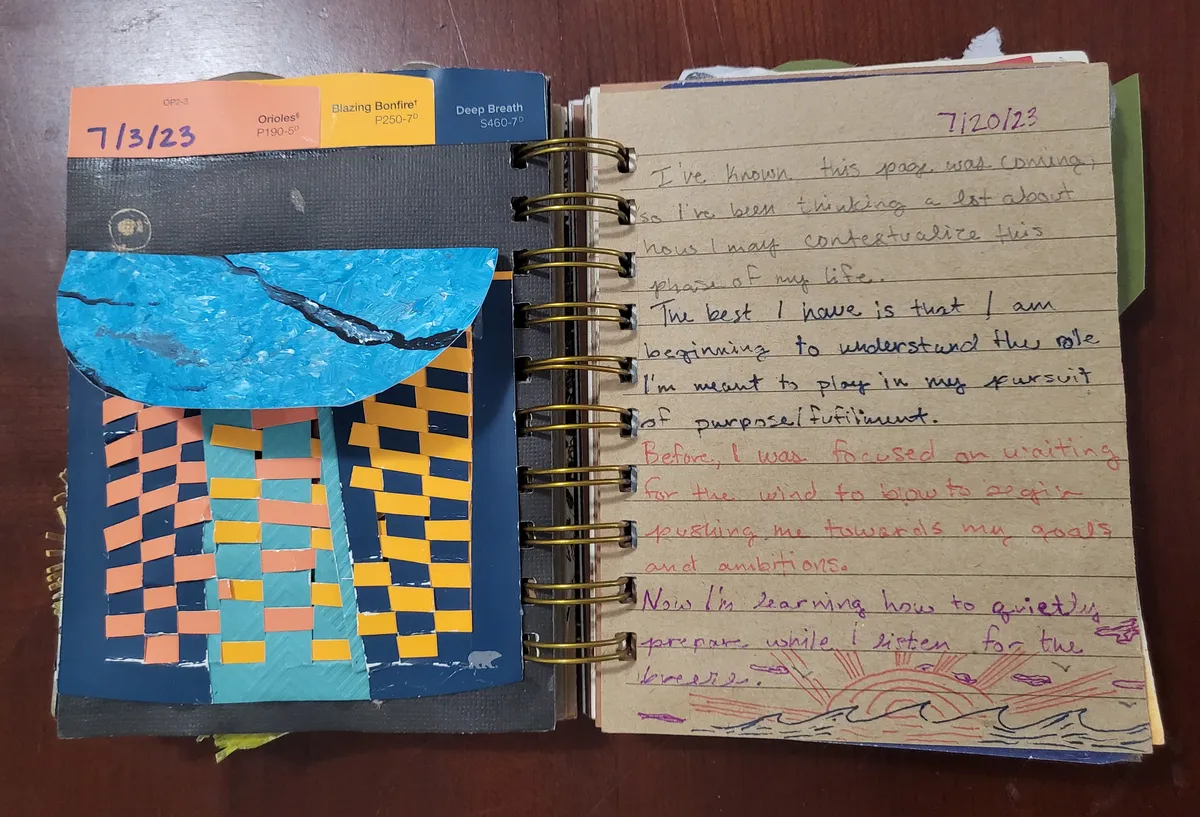 OP2-3
Orioles§
P190-5D
7/3/23
Blazing Bonfire†
P250-7D
Deep Breath
S460-7D
7/20/23
I've known this page was coming,
so I've been thinking a lot about
how I may contextualize this
phase of my life.
The best I have is that I am
beginning to understand the role
I'm meant to play in my pursuit
of purpose/fufilment.
Before, I was focused on waiting
for the wind to blow to begin
pushing me towards my goals
and ambitions.
Now I'm learning how to quietly
prepare while I listen for the
breeze.